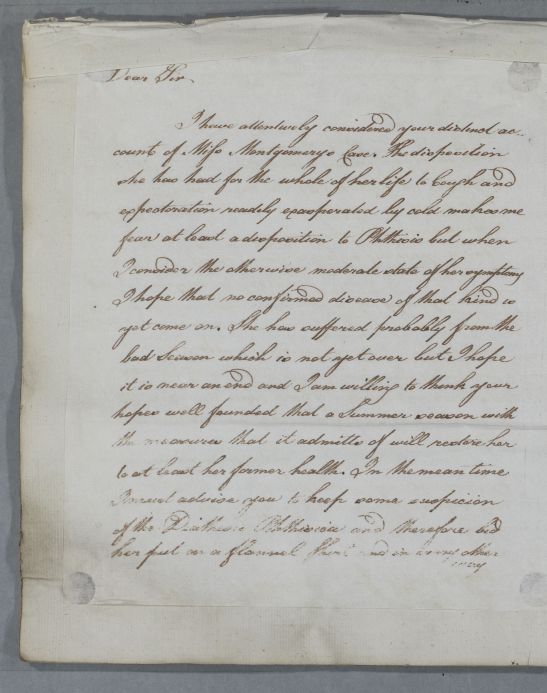 Dear Sir,
I have attentively considered your distinct ac-
count of Miss Montgomerys Case. The disposition
she has had for the whole of her life to Cough and
expectoration readily exasperated by cold makes me
fear at least a disposition to Phthisis but when
I consider the otherwise moderate state of her symptoms
I hope that no confirmed disease of that kind is
yet come on. She has suffered probably from the
bad Season which is not yet over but I hope
it is near an end and I am willing to think your
hopes well founded that a Summer season with
the measures that it admitts of will restore her
to at least her former health. In the mean time
I must advise you to keep some suspicion
of the Diathesis Phthisica and therefore bid
her put on a flannel Shirt and in every other